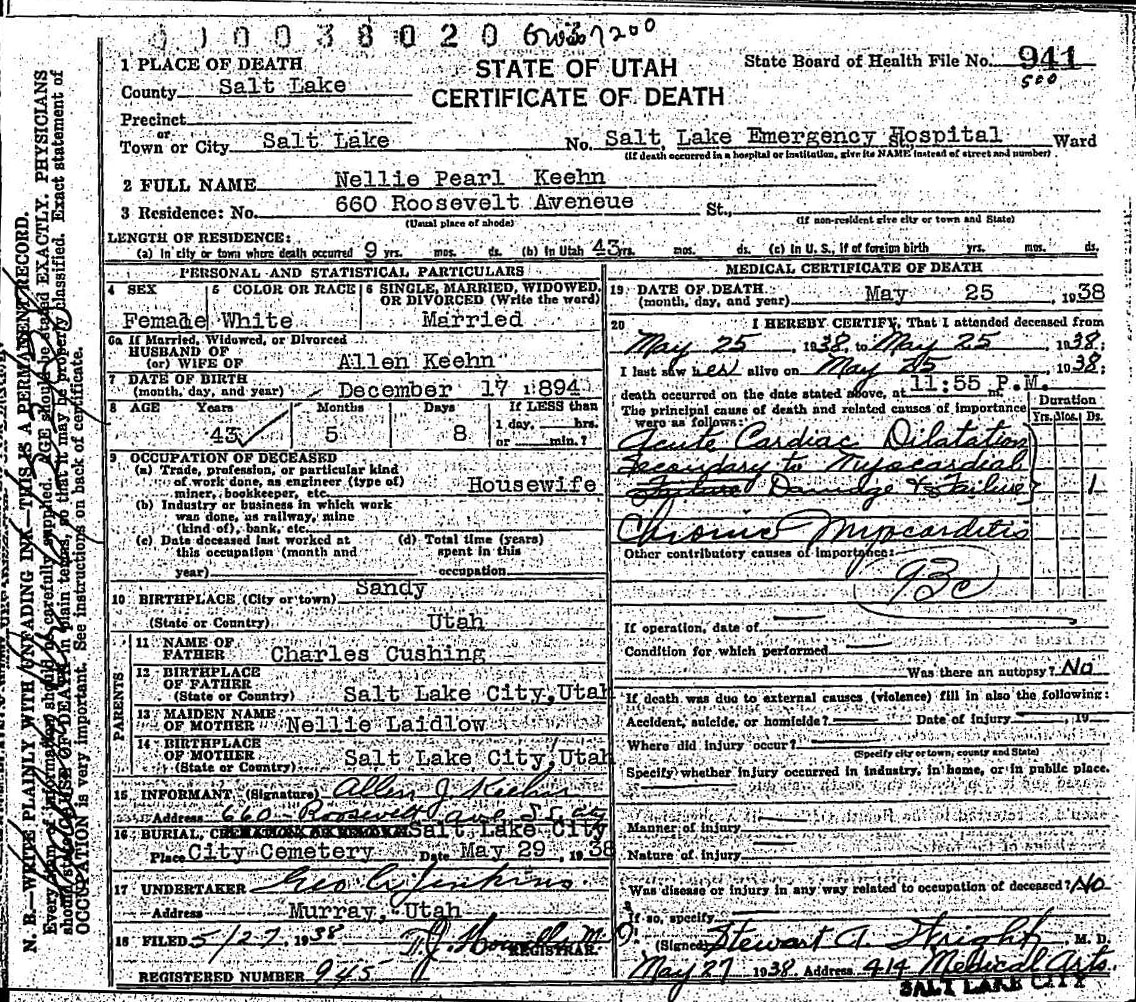 0 1 0 0 3 8 0 2 0
1 PLACE OF DEATH
County Salt Lake
Precinct
or
Town or City Salt Lake
STATE OF UTAH
CERTIFICATE OF DEATH
State Board of Health File No. 941
500
No. Salt Lake Emergency Hospital Ward
(If death occurred in a hospital or institution, give its NAME instead of street and number)
2 FULL NAME Nellie Pearl Keehn
3 Residence: No. 660 Roosevelt Aveneue St.,
(Usual place of abode) (If non-resident give city or town and State)
LENGTH OF RESIDENCE:
(a) In city or town where death occurred 9 yrs. mos. ds. (b) In Utah 43 yrs. mos. ds. (c) In U. S., if of foreign birth yrs. mos. ds.
PERSONAL AND STATISTICAL PARTICULARS
4 SEX 5 COLOR OR RACE 6 SINGLE, MARRIED, WIDOWED, OR DIVORCED (Write the word)
Female White Married
6a If Married, Widowed, or Divorced
HUSBAND OF
(or) WIFE OF Allen Keehn
7 DATE OF BIRTH
(month, day, and year) December 17 1894
8 AGE Years Months Days If LESS than
1 day, hrs.
43 5 8 or min.?
9 OCCUPATION OF DECEASED
(a) Trade, profession, or particular kind
of work done, as engineer (type of)
miner, bookkeeper, etc. Housewife
(b) Industry or business in which work
was done, as railway, mine
(kind of), bank, etc.
(c) Date deceased last worked at
this occupation (month and
year)
(d) Total time (years)
spent in this
occupation
10 BIRTHPLACE (City or town) Sandy
(State or Country) Utah
PARENTS
11 NAME OF
FATHER Charles Cushing
12 BIRTHPLACE
OF FATHER
(State or Country) Salt Lake City, Utah
13 MAIDEN NAME
OF MOTHER Nellie Laidlow
14 BIRTHPLACE
OF MOTHER
(State or Country) Salt Lake City, Utah
15 INFORMANT (Signature) Allen J Keehn
Address 660 Roosevelt ave S L City
16 BURIAL, CREMATION OR REMOVAL Salt Lake City
Place City Cemetery Date May 29, 1938
17 UNDERTAKER Geo A Jenkins
Address Murray, Utah
18 FILED 5/27, 1938 T. J. Howells M D
REGISTRAR.
REGISTERED NUMBER 945
MEDICAL CERTIFICATE OF DEATH
19 DATE OF DEATH
(month, day, and year) May 25, 1938
20 I HEREBY CERTIFY, That I attended deceased from
May 25 1938 to May 25 1938;
I last saw her alive on May 25 1938;
death occurred on the date stated above, at 11:55 P.M. m.
The principal cause of death and related causes of importance
were as follows:
Duration
Yrs. Mos. Ds.
Acute Cardiac Dilatation
Secondary to Myocardial
Failure Damage & Failure 1
Chronic Myocarditis
Other contributory causes of importance:
93c
If operation, date of
Condition for which performed
Was there an autopsy? No
If death was due to external causes (violence) fill in also the following:
Accident, suicide, or homicide? Date of injury , 19
Where did injury occur?
(Specify city or town, county and State)
Specify whether injury occurred in industry, in home, or in public place.
Manner of injury
Nature of injury
Was disease or injury in any way related to occupation of deceased? No
If so, specify
(Signed) Stewart A. Wright, M. D.
May 27 1938 Address 414 Medical Arts.
SALT LAKE CITY
N. B.—WRITE PLAINLY WITH UNFADING INK—THIS IS A PERMANENT RECORD.
Every item of information should be carefully supplied. AGE should be stated EXACTLY. PHYSICIANS
should state CAUSE OF DEATH in plain terms, so that it may be properly classified. Exact statement of
OCCUPATION is very important. See instructions on back of certificate.